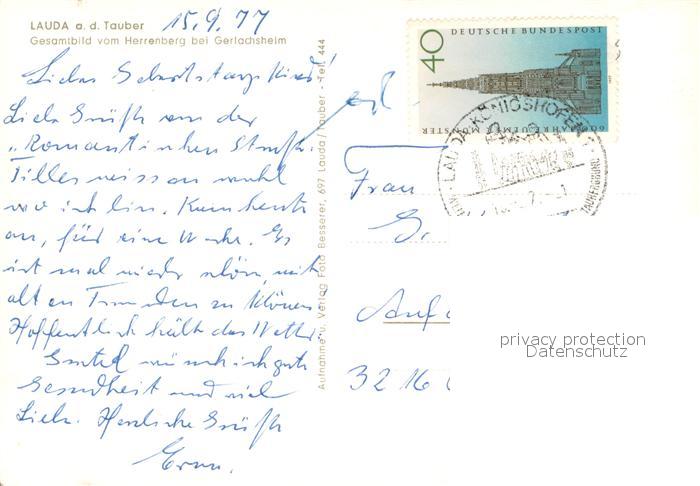 LAUDA a. d. Tauber
Gesamtbild vom Herrenberg bei Gerlachsheim
15.9.77
Liebes Geburtstagskind!
Liebe Grüße von der
"Romantischen Straße.
wo ich bin. Kam heute
an, für eine Woche. Es
ist mal wieder schön mit
alten Freunden zu klönen
Hoffentlich hält das Wetter.
wünsch ich gute
Gesundheit und viel
Liebe. Herzliche Grüße
Erna.
Aufnahme u. Verlag Foto Besserer, 697 Lauda/Tauber - Tel. 444
40
DEUTSCHE BUNDESPOST
600 JAHRE ULMER MÜNSTER
LAUDA-KÖNIGSHOFEN
Frau
G.
3216
privacy protection
Datenschutz